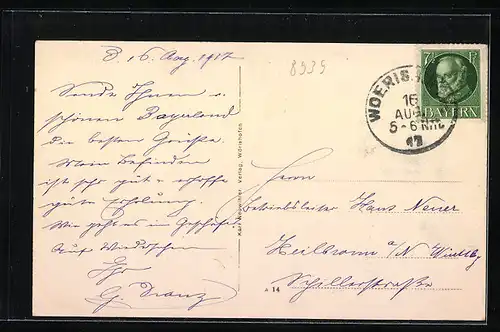 D. 16 Aug. 1917
8939
Sende Ihnen v.
schönen Bayerland
die besten Grüße.
Mein Befinden
ist sehr gut u. erhoffe
gute Erholung.
Wie geht es im Geschäft.
Auf Wiedersehen
Ihr
G. Franz
Karl Verlag, Wörishofen
WOERIS
16
AUG
5-6 Nm
17
7½ Pf
BAYERN
Herrn
Betriebsleiter Hans Neuer
Heilbronn a/N
Schillerstraße
A 14